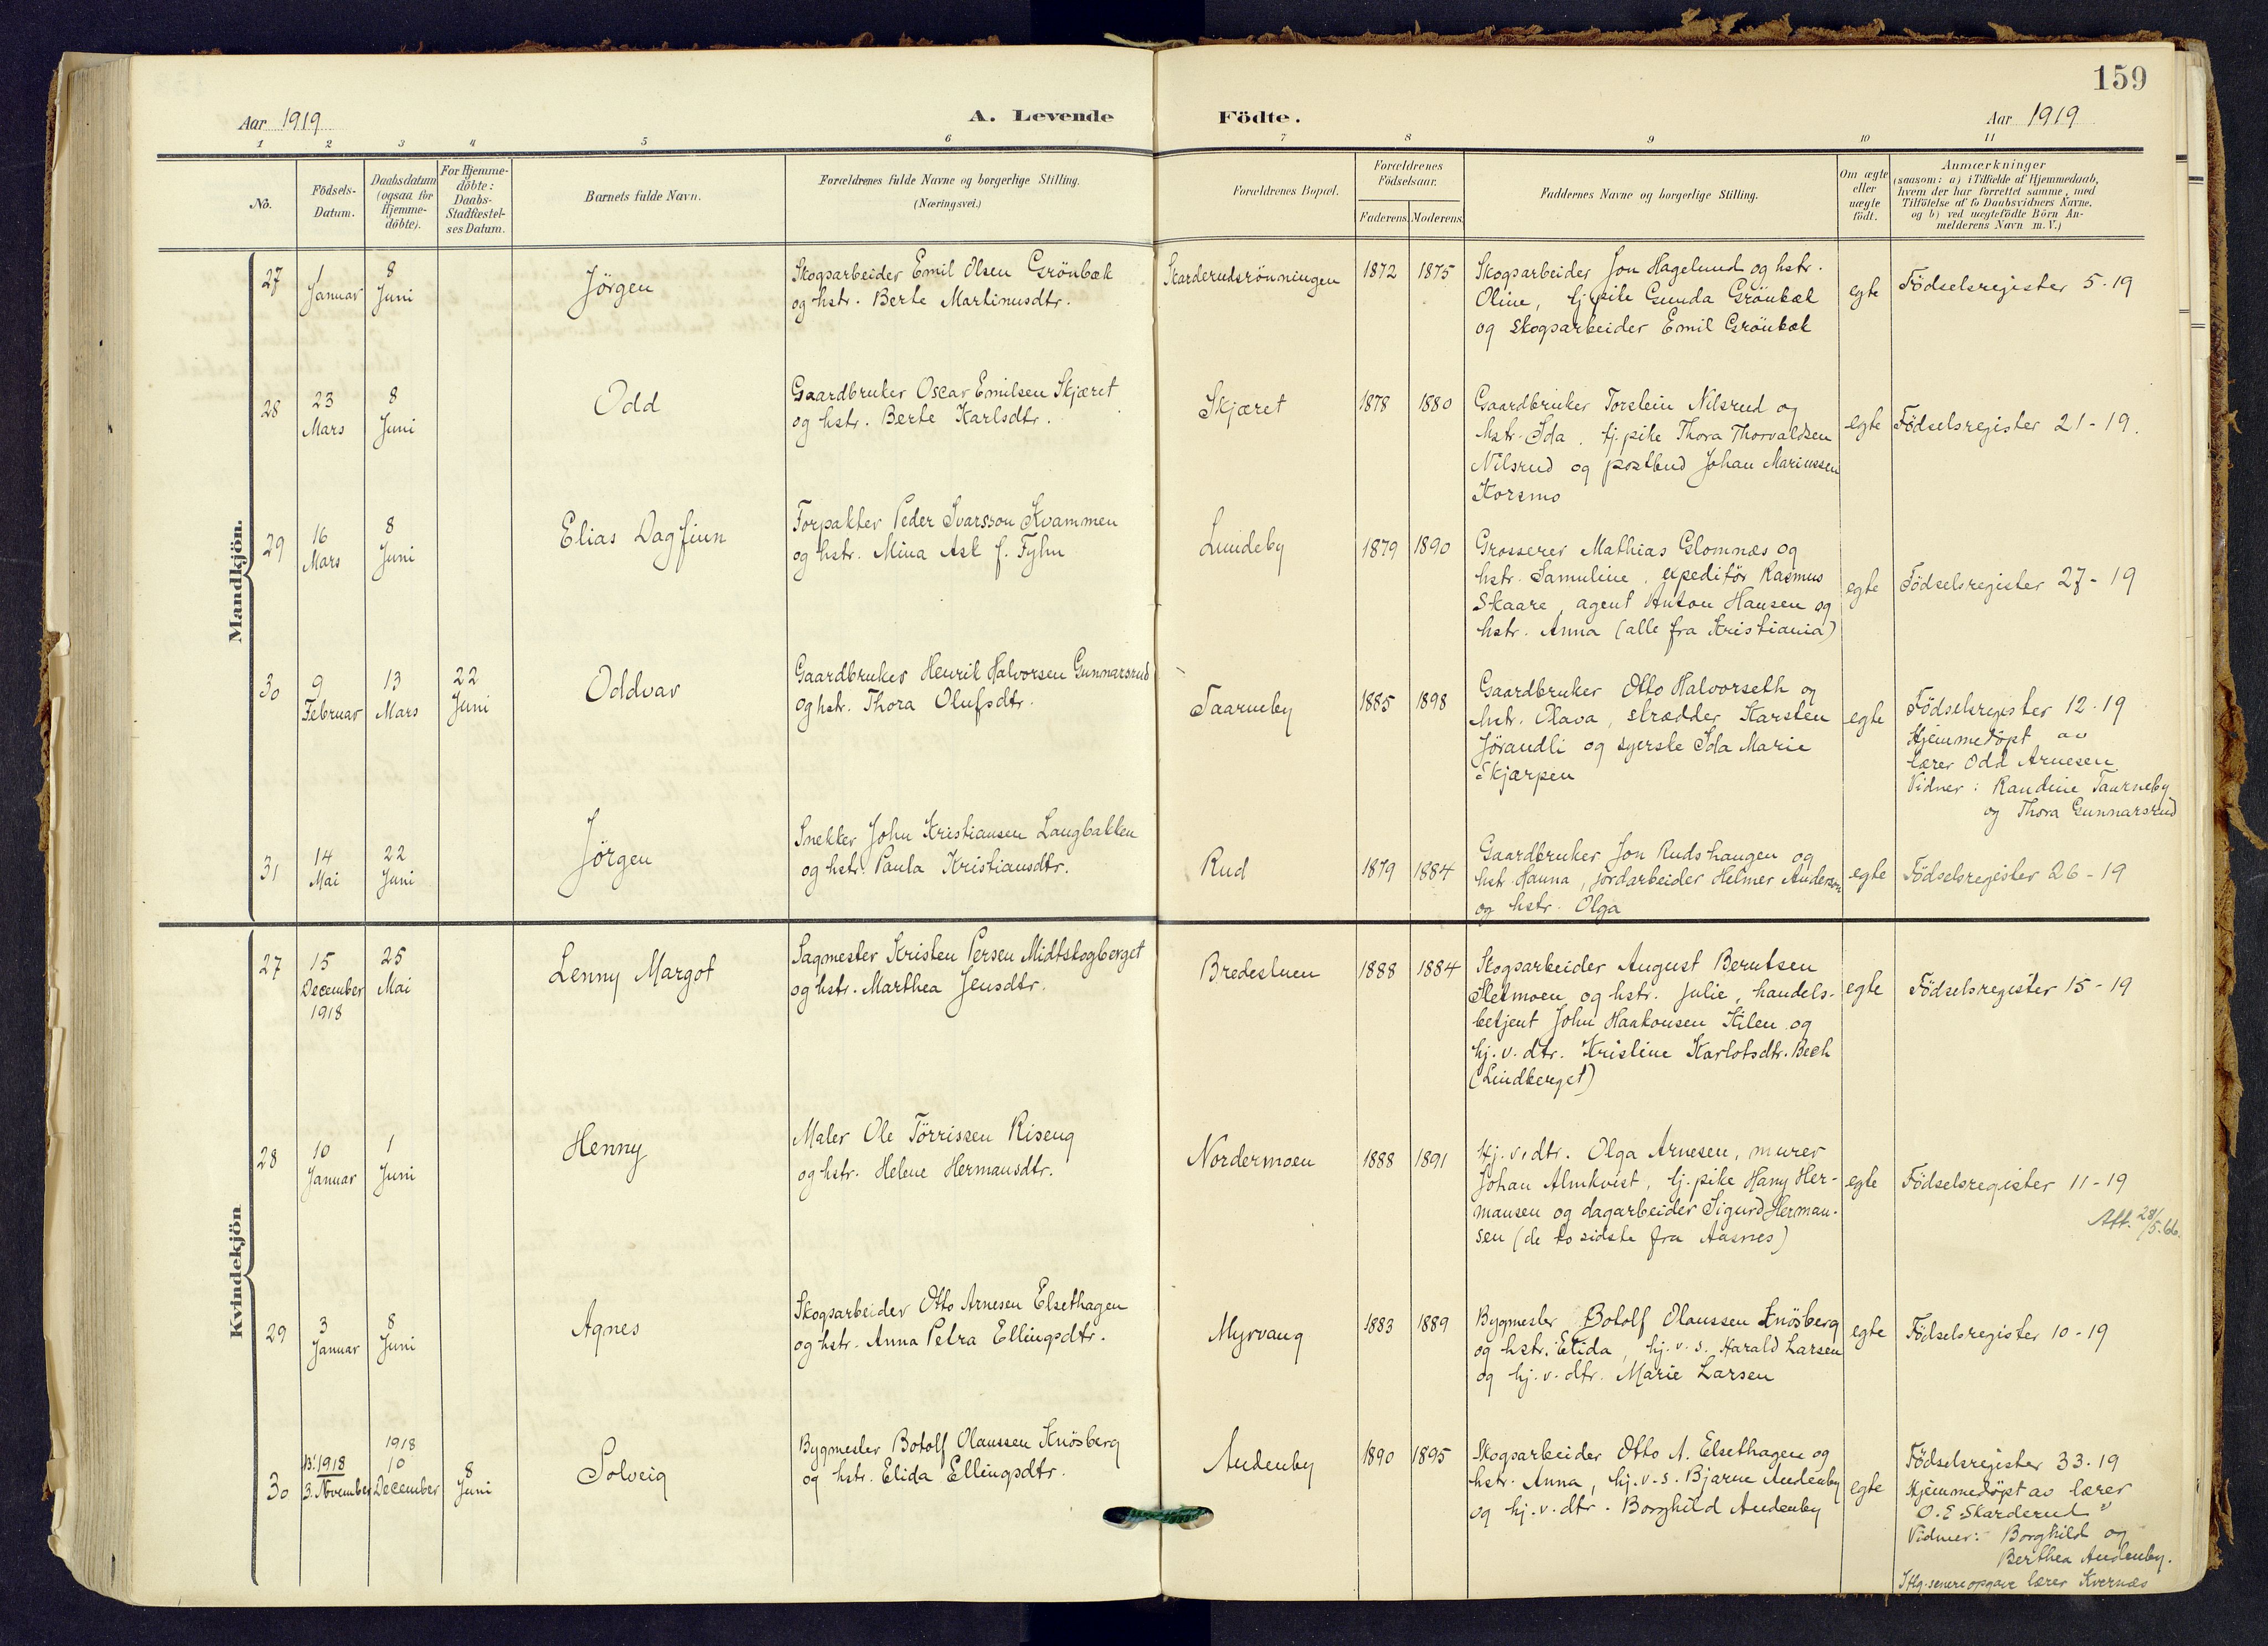 159
Aar 1919
A. Levende
Födte.
Aar 1919
1 2 3 4 5 6 7 8 9 10 11
No.
Födsels-
Datum.
Daabsdatum
(ogsaa for
Hjemme-
döbte).
For Hjemme-
döbte:
Daabs-
Stadfæstel-
ses Datum.
Barnets fulde Navn.
Forældrenes fulde Navne og borgerlige Stilling.
(Næringsvei.)
Forældrenes Bopæl.
Forældrenes
Födselsaar.
Faderens. Moderens.
Faddernes Navne og borgerlige Stilling.
Om ægte
eller
uægte
födt.
Anmærkninger
(saasom: a) i Tilfælde af Hjemmedaab,
hvem der har forrettet samme, med
Tilföielse af to Daabsvidners Navne,
og b) ved uægtefödte Börn An-
melderens Navn m. V.)
Mandkjön.
27
1
Januar
8
Juni
Jörgen
Skogsarbeider Emil Olsen Grönbæk
og hstr. Berte Martinusdtr.
Skarderudsrönningen
1872 1875
Skogsarbeider Jon Hagelund og hstr.
Oline, tj.pike Gunda Grönbæk
og skogsarbeider Emil Grönbæk
egte
Födselsregister 5-19
28
23
Mars
8
Juni
Odd
Gaardbruker Oscar Emilsen Skjæret
og hstr. Berte Karlsdtr.
Skjæret
1878 1880
Gaardbruker Torstein Nilsrud og
hstr. Ida, tj.pike Thora Thorvaldsen
Nilsrud og postbud Johan Mariussen
Korsmo
egte
Födselsregister 21-19.
29
16
Mars
8
Juni
Elias Dagfinn
Forpakter Peder Ivarsson Kvammen
og hstr. Mina Ask f. Fyhn
Lundeby
1879 1890
Grosserer Mathias Glomnæs og
hstr. Samuline, expeditör Rasmus
Skaare, agent Anton Hansen og
hstr. Anna (alle fra Kristiania)
egte
Födselsregister 27-19
30
9
Februar
13
Mars
22
Juni
Oddvar
Gaardbruker Henrik Halvorsen Gunnarsrud
og hstr. Thora Olufsdtr.
Taarneby
1885 1898
Gaardbruker Otto Halvorseth og
hstr. Olava, skrædder Karsten
Jörandli og syerske Ida Marie
Skjærpen
egte
Födselsregister 12-19
Hjemmedöpt av
lærer Odd Arnesen
Vidner: Randine Taarneby
og Thora Gunnarsrud
31
14
Mai
22
Juni
Jörgen
Snekker John Kristiansen Langbakken
og hstr. Paula Kristiansdtr.
Rud
1879 1884
Gaardbruker Jon Rudshaugen og
hstr. Hanna, jordarbeider Helmer Andersen
og hstr. Olga
egte
Födselsregister 26-19
Kvindekjön
27
15
December
1918
25
Mai
Lenny Margot
Sagmester Kristen Persen Midtskogberget
og hstr. Marthea Jensdtr.
Bredesluen
1888 1884
Skogsarbeider August Berntsen
og hstr. Julie, handels-
betjent John Haakonsen Kilen og
hj.v.dtr. Kristine Karlotsdtr. Bech
(Lindberget)
egte
Födselsregister 15-19
28
10
Januar
1
Juni
Henny
Maler Ole Törrissen Riseng
og hstr. Helene Hermansdtr.
Nordermoen
1888 1891
Hj.v.dtr. Olga Arnesen, murer
Johan Almkvist, tj.pike Hany Her-
mansen og dagarbeider Sigurd Herman-
sen (de to sidste fra Aasnes)
egte
Födselsregister 11-19
Att. 28/5.66.
29
3
Januar
8
Juni
Agnes
Skogsarbeider Otto Arnesen Elsethagen
og hstr. Anna Petra Ellingsdtr.
Myrvang
1883 1889
Bygmester Botolf Olaussen Knösberg
og hstr. Elida, hj.v.s. Harald Larsen
og hj.v.dtr. Marie Larsen
egte
Födselsregister 10-19
30
1918
3. November
1918
10
December
8
Juni
Solveig
Bygmester Botolf Olaussen Knösberg
og hstr. Elida Ellingsdtr.
Audenby
1890 1895
Skogsarbeider Otto A. Elsethagen og
hstr. Anna, hj.v.s. Bjarne Audenby
og hj.v.dtr. Borghild Audenby
egte
Födselsregister 33-19
Hjemmedöpt av lærer
O. E. Skarderud
Vidner: Borghild og
Berthea Audenby.
Iflg. senere opgave lærer Kvernæs